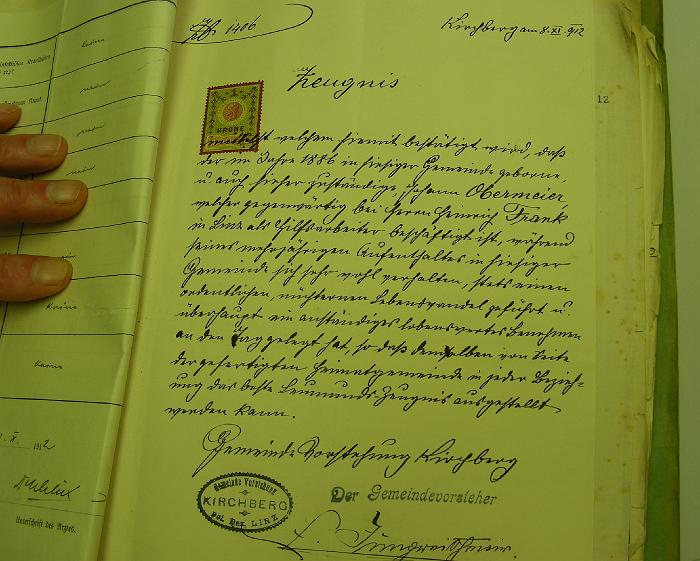 1406
Kirchberg am 8. XI. 912
Zeugnis
KRONE
mittelst welchem hiemit bestätigt wird, daß
der im Jahre 1886 in hiesiger Gemeinde geborne,
u. auch hieher zuständige, Johann Obermeier,
welcher gegenwärtig bei Herrn Heinrich Frank
in Linz als Hilfsarbeiter beschäftigt ist, während
seines mehrjährigen Aufenthaltes in hiesiger
Gemeinde sich sehr wohl verhalten, stets einen
ordentlichen, nüchternen Lebenswandel geführt u.
überhaupt ein anständiges lobenswertes Benehmen
an den Tag gelegt hat, so daß demselben von Seite
der gefertigten Heimatgemeinde in jeder Bezieh-
ung das beste Leumunds Zeugnis ausgestellt
werden kann.
Gemeinde Vorstehung Kirchberg
Gemeinde Vorstehung
KIRCHBERG
pol. Bez. LINZ
Der Gemeindevorsteher
12
2
keine
nein
nein
nein
keine
keine
X. 1912
Unterschrift des Arztes.